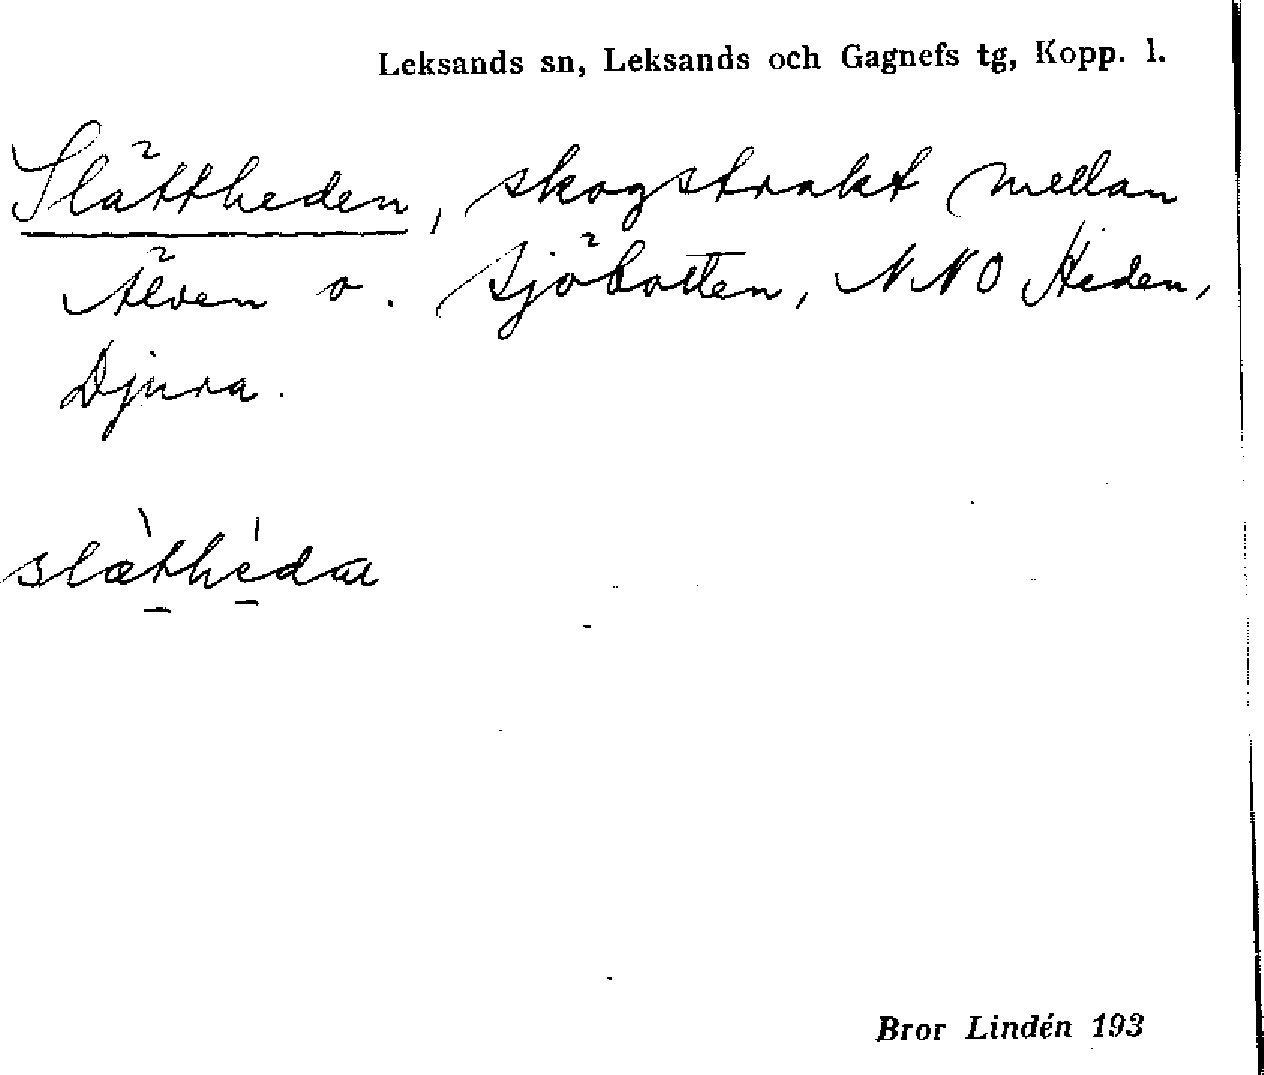 Leksands sn, Leksands och Gagnefs tg, Kopp. l.
Slättheden, skogstrakt mellan
Älven o. Sjöbotten, NNO Heden,
Djura.
slæ̀thédæ
Bror Lindén 193